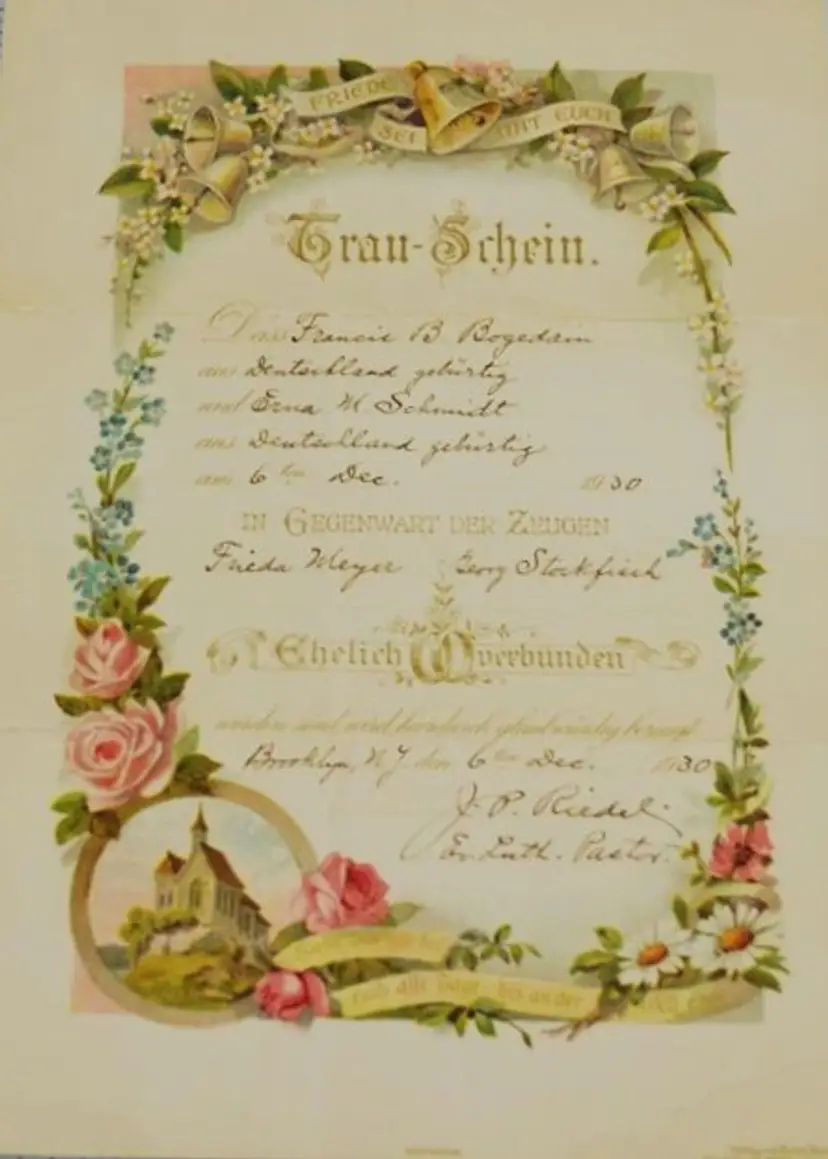 FRIEDE
SEI MIT EUCH
Trau-Schein.
Dass Francis B Bogedain
aus Deutschland gebürtig
und Erna M Schmidt
aus Deutschland gebürtig
am 6 ten Dec. 1930
IN GEGENWART DER ZEUGEN
Frieda Meyer Georg Stockfisch
Ehelich verbunden
worden sind wird hierdurch glaubwürdig bezeugt
Brooklyn, N.Y. den 6 ten Dec. 1930
J. P. Riedel
Ev. Luth. Pastor.
alle Tage bis an der